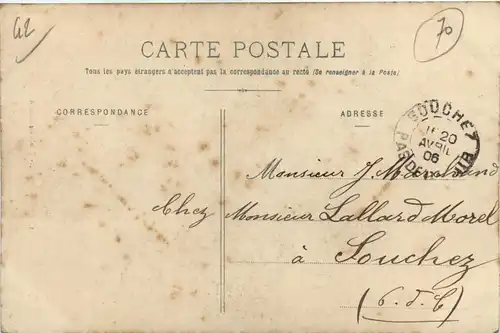 42
70
CARTE POSTALE
Tous les pays étrangers n'acceptent pas la correspondance au recto (Se renseigner à la Poste)
CORRESPONDANCE
ADRESSE
SOUCHEZ
20
AVRIL
06
PAS DE
Monsieur J. Marchand
Chez Monsieur Lallard Morel
à Souchez
(P. d. C)